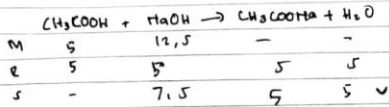 CH₃COOH + NaOH → CH₃COONa + H₂O
M 5 12,5 — -
R 5 5 5 5
S - 7,5 5 5 ✓